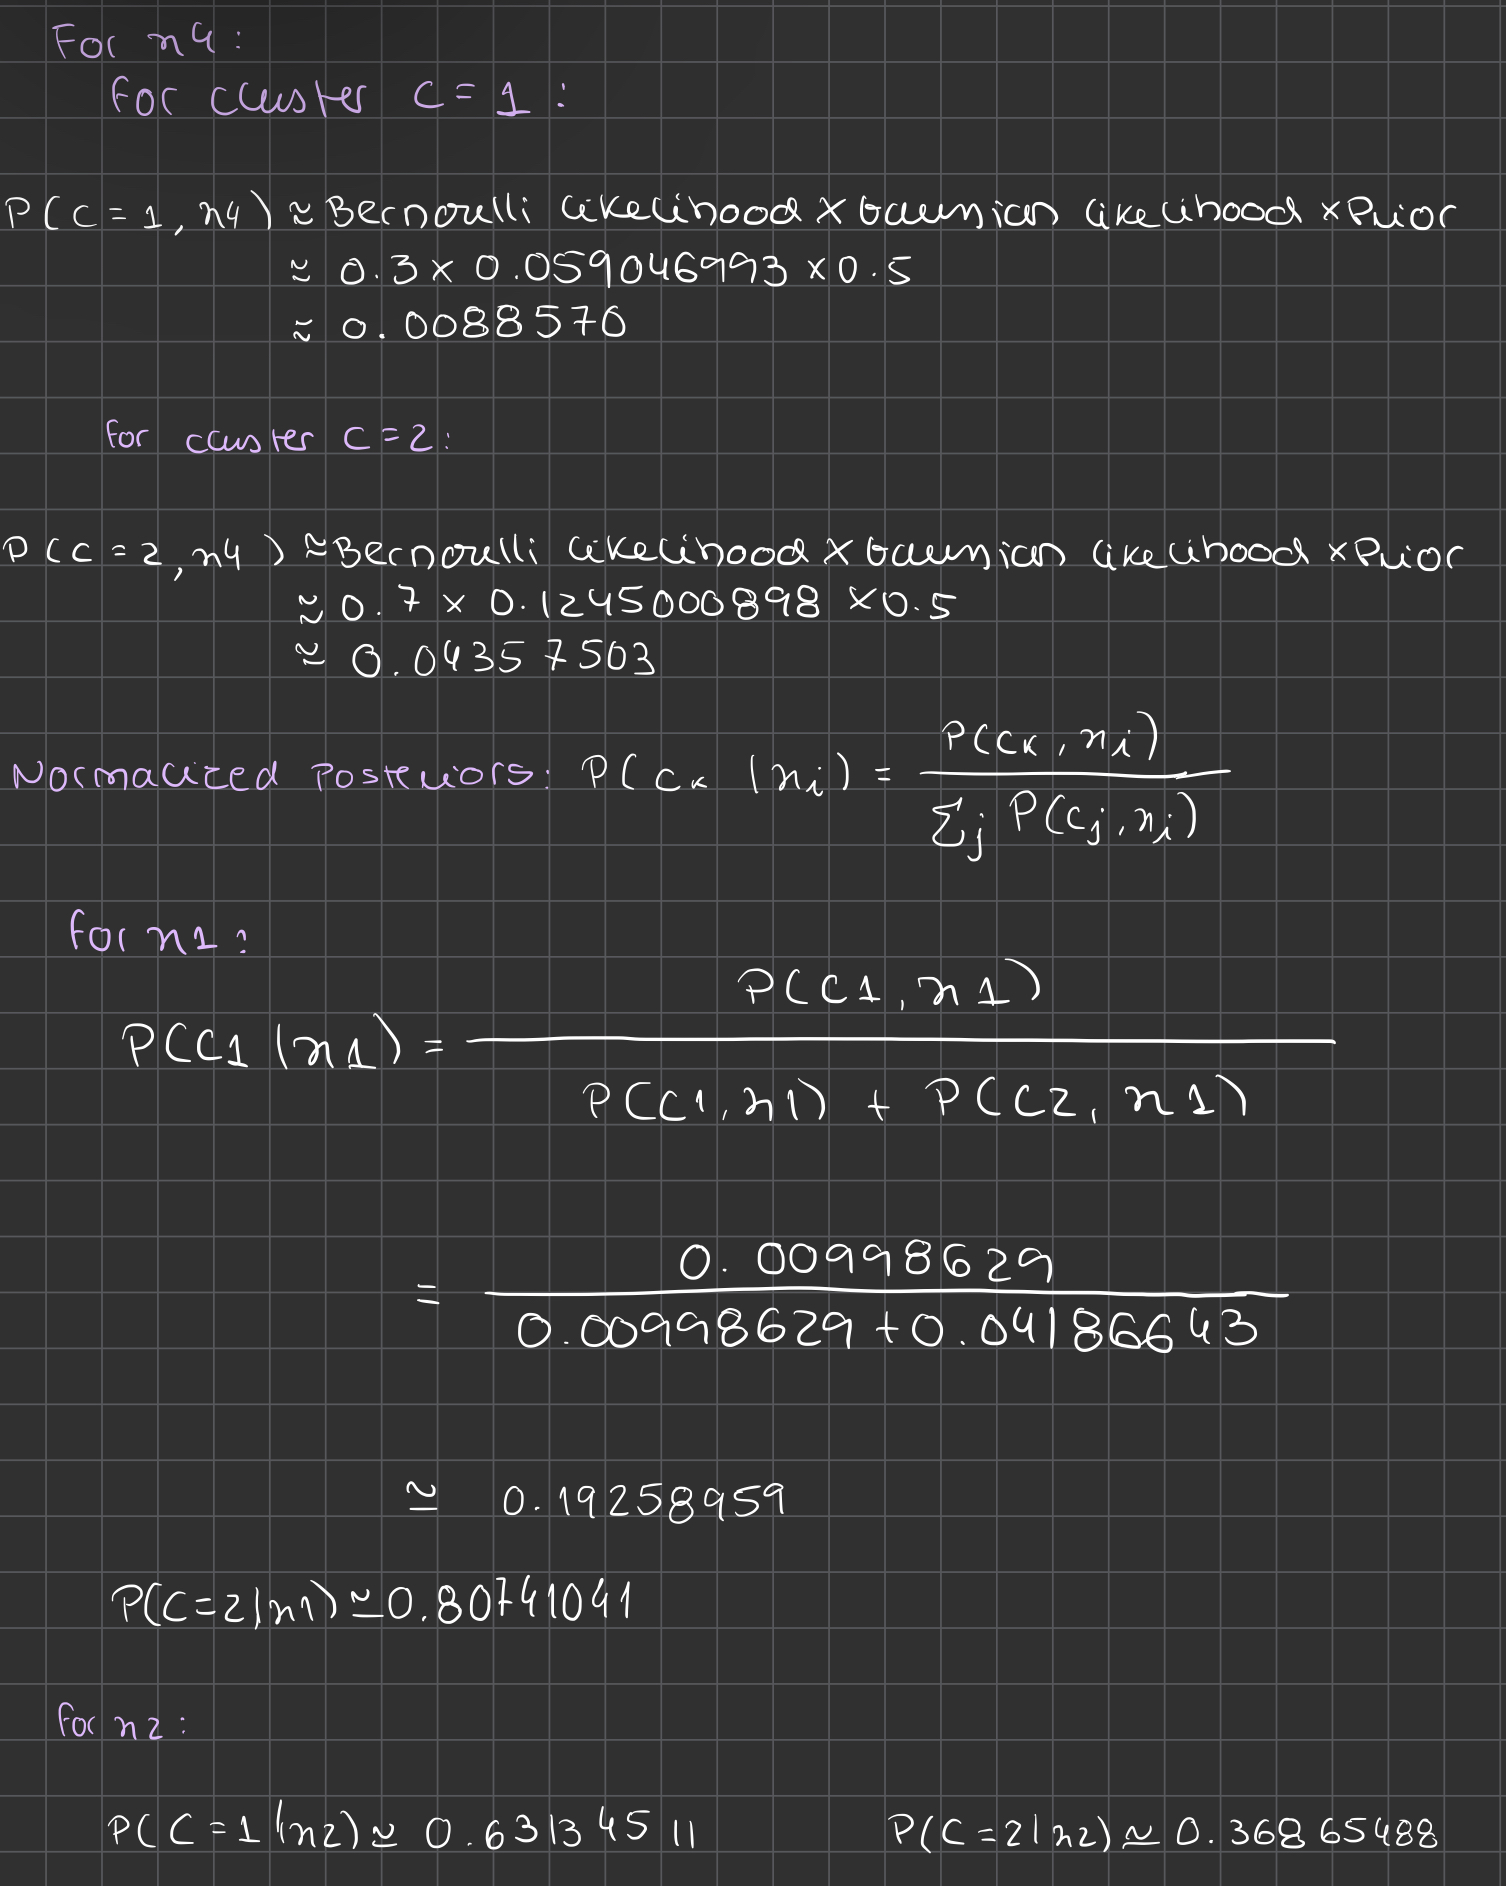 For x4:
For cluster C = 1 :
P(C = 1, x4) ≈ Bernoulli likelihood × Gaussian likelihood × Prior
≈ 0.3 × 0.059046993 × 0.5
≈ 0.0088570
For cluster C = 2:
P(C = 2, x4) ≈ Bernoulli likelihood × Gaussian likelihood × Prior
≈ 0.7 × 0.1245000898 × 0.5
≈ 0.04357503
Normalized Posteriors: P(Ck | xi) = P(Ck, xi) / Σj P(Cj, xi)
For x1:
P(C1 | x1) = P(C1, x1) / P(C1, x1) + P(C2, x1)
= 0.00998629 / 0.00998629 + 0.04186643
≃ 0.19258959
P(C=2|x1) ≃ 0.80741041
For x2:
P(C=1|x2) ≃ 0.63134511 P(C=2|x2) ≃ 0.36865488